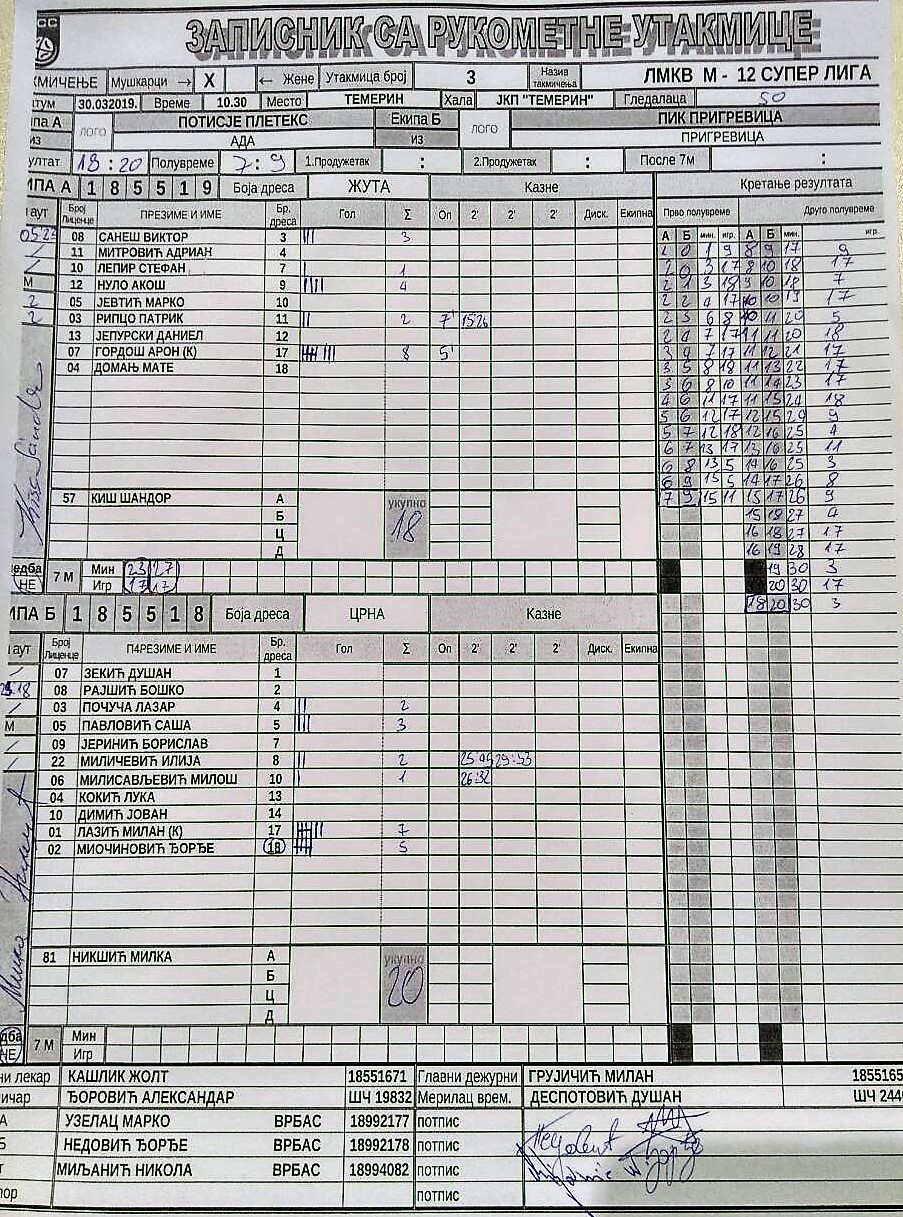 ЗАПИСНИК СА РУКОМЕТНЕ УТАКМИЦЕ
КМИЧЕЊЕ Мушкарци → X ← Жене Утакмица број 3 Назив такмичења ЛМКВ М - 12 СУПЕР ЛИГА
тум 30.032019. Време 10.30 Место ТЕМЕРИН Хала ЈКП "ТЕМЕРИН" Гледалаца 50
ипа А ЛОГО ПОТИСЈЕ ПЛЕТЕКС Екипа Б ЛОГО ПИК ПРИГРЕВИЦА
из АДА из ПРИГРЕВИЦА
ултат 18 : 20 Полувреме 7 : 9 1.Продужетак : 2.Продужетак : После 7м :
ИПА А 1 8 5 5 1 9 Боја дреса ЖУТА Казне Кретање резултата
аут Број Лиценце ПРЕЗИМЕ И ИМЕ Бр. дреса Гол Σ Оп 2' 2' 2' Диск. Екипна Прво полувреме Друго полувреме
А Б мин. игр. А Б мин. игр.
08 САНЕШ ВИКТОР 3 III 3
11 МИТРОВИЋ АДРИАН 4
10 ЛЕПИР СТЕФАН 7 I 1
12 НУЛО АКОШ 9 IIII 4
05 ЈЕВТИЋ МАРКО 10
03 РИПЦО ПАТРИК 11 II 2 7' 1526
13 ЈЕПУРСКИ ДАНИЕЛ 12
07 ГОРДОШ АРОН (К) 17 8 5'
04 ДОМАЊ МАТЕ 18
1 0 1 9 8 9 17 9
2 0 3 17 8 10 18 17
2 1 3 18 9 10 18 7
2 2 4 17 10 10 19 17
2 3 6 8 10 11 20 5
2 4 7 17 11 11 20 18
3 4 7 17 11 12 21 17
3 5 8 18 11 13 22 17
3 6 8 10 11 14 23 17
4 6 11 17 11 15 24 18
5 6 12 17 12 15 24 9
5 7 12 18 12 16 25 4
6 7 13 17 13 16 25 11
6 8 13 5 14 16 25 3
6 9 15 5 14 17 26 8
7 9 15 11 15 17 26 9
15 18 27 4
16 18 27 17
16 19 28 17
19 30 3
20 30 17
18 20 30 3
57 КИШ ШАНДОР А укупно 18
Б
Ц
Д
едба НЕ 7 М Мин 23 27
Игр 17 17
ИПА Б 1 8 5 5 1 8 Боја дреса ЦРНА Казне
аут Број Лиценце П4РЕЗИМЕ И ИМЕ Бр. дреса Гол Σ Оп 2' 2' 2' Диск. Екипна
07 ЗЕКИЋ ДУШАН 1
08 РАЈШИЋ БОШКО 2
03 ПОЧУЧА ЛАЗАР 4 II 2
05 ПАВЛОВИЋ САША 5 III 3
09 ЈЕРИНИЋ БОРИСЛАВ 7
22 МИЛИЧЕВИЋ ИЛИЈА 8 II 2 25:45 29:53
06 МИЛИСАВЉЕВИЋ МИЛОШ 10 I 1 26:32
04 КОКИЋ ЛУКА 13
10 ДИМИЋ ЈОВАН 14
01 ЛАЗИЋ МИЛАН (К) 17 7
02 МИОЧИНОВИЋ ЂОРЂЕ 18 5
81 НИКШИЋ МИЛКА А укупно 20
Б
Ц
Д
дба НЕ 7 М Мин
Игр
ни лекар КАШЛИК ЖОЛТ 18551671 Главни дежурни ГРУЈИЧИЋ МИЛАН 1855165
ичар ЂОРОВИЋ АЛЕКСАНДАР ШЧ 19832 Мерилац врем. ДЕСПОТОВИЋ ДУШАН ШЧ 244
А УЗЕЛАЦ МАРКО ВРБАС 18992177 потпис
Б НЕДОВИЋ ЂОРЂЕ ВРБАС 18992178 потпис
т МИЉАНИЋ НИКОЛА ВРБАС 18994082 потпис
пор потпис